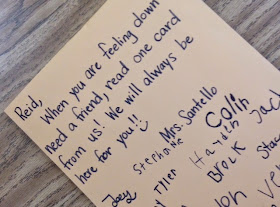 Reid,
When you are feeling down
need a friend, read one card
from us! We will always be
here for you!!
Mrs. Santello
Stephanie
Colin
Jack
Tyler
Hayden
Brock
Joey